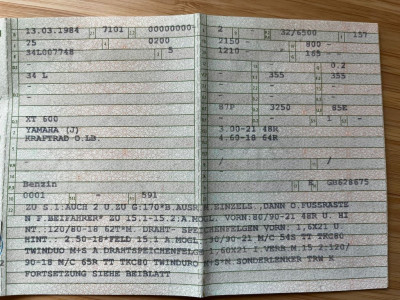 13.03.1984 7101 00000000-
75 0200
34L007748 5
34 L
-
-
XT 600
YAMAHA (J)
KRAFTRAD O.LB.
Benzin
0001 - 591
2 32/6500 157
2150 - 800 -
1210 - P 165 - -
- - 0.2
- - 355 355
- - - -
87P 3250 85E
- - 1 -
3.00-21 48R
4.60-18 64R
- /
- /
E GB628675
ZU S.1.AUCH 2 U.ZU G:170*B.AUSR. M EINZELS.,DANN O.FUSSRASTE
N F.BEIFAHRER* ZU 15.1-15.2:A.MOGL. VORN:80/90-21 48R U. HI
NT.:120/80-18 62T*M. DRAHT- SPEICHENFELGEN VORN: 1,6X21 U
HINT.: 2.50-18*FELD 15.1 A.MOGL. 90/90-21 M/C 54S TT TKC80
TWINDUO M+S A.DRAHTSPEICHENFELGE 1,60X21 I.VERB.M.15.2:120/
90-18 M/C 65R TT TKC80 TWINDURO M+S*M SONDERLENKER TRW
FORTSETZUNG SIEHE BEIBLATT